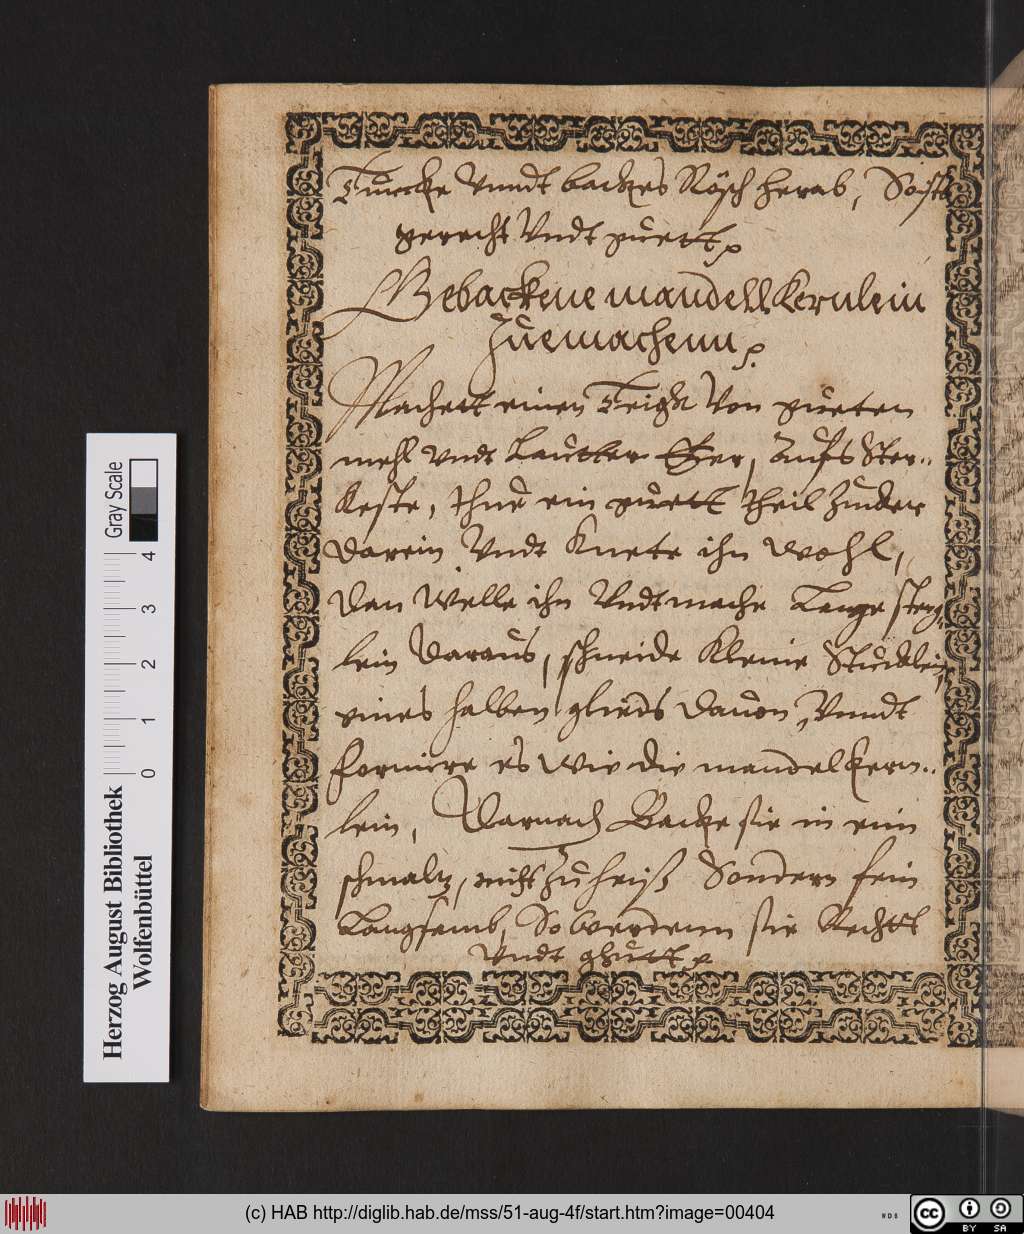 Truckke Vnndt backes Rösch herab, So ists
gerecht Vndt guett
Gebackene mandell Kernlein
Zue machenn
Machett einen Teigk Von gueten
mehl vndt Lautter Eyer, Aufs Ster-
keste, thue ein guett theil Zucker
darein Vndt Knete ihn wohl,
dan Welle ihn Vndt mache Lange steng-
lein daraus, schneide Kleine Stucklein,
eines halben glieds dauon, Vnndt
formire es Wie die mandelkern-
lein, Darnach Backe sie in ein
schmaltz, nicht Zu heiß Sondern fein
Langsamb, So werdenn sie Rechtt
Vndt ghutt
Gray Scale
4
3
2
1
0
Herzog August Bibliothek
Wolfenbüttel
(c) HAB http://diglib.hab.de/mss/51-aug-4f/start.htm?image=00404
WDB
cc
BY SA